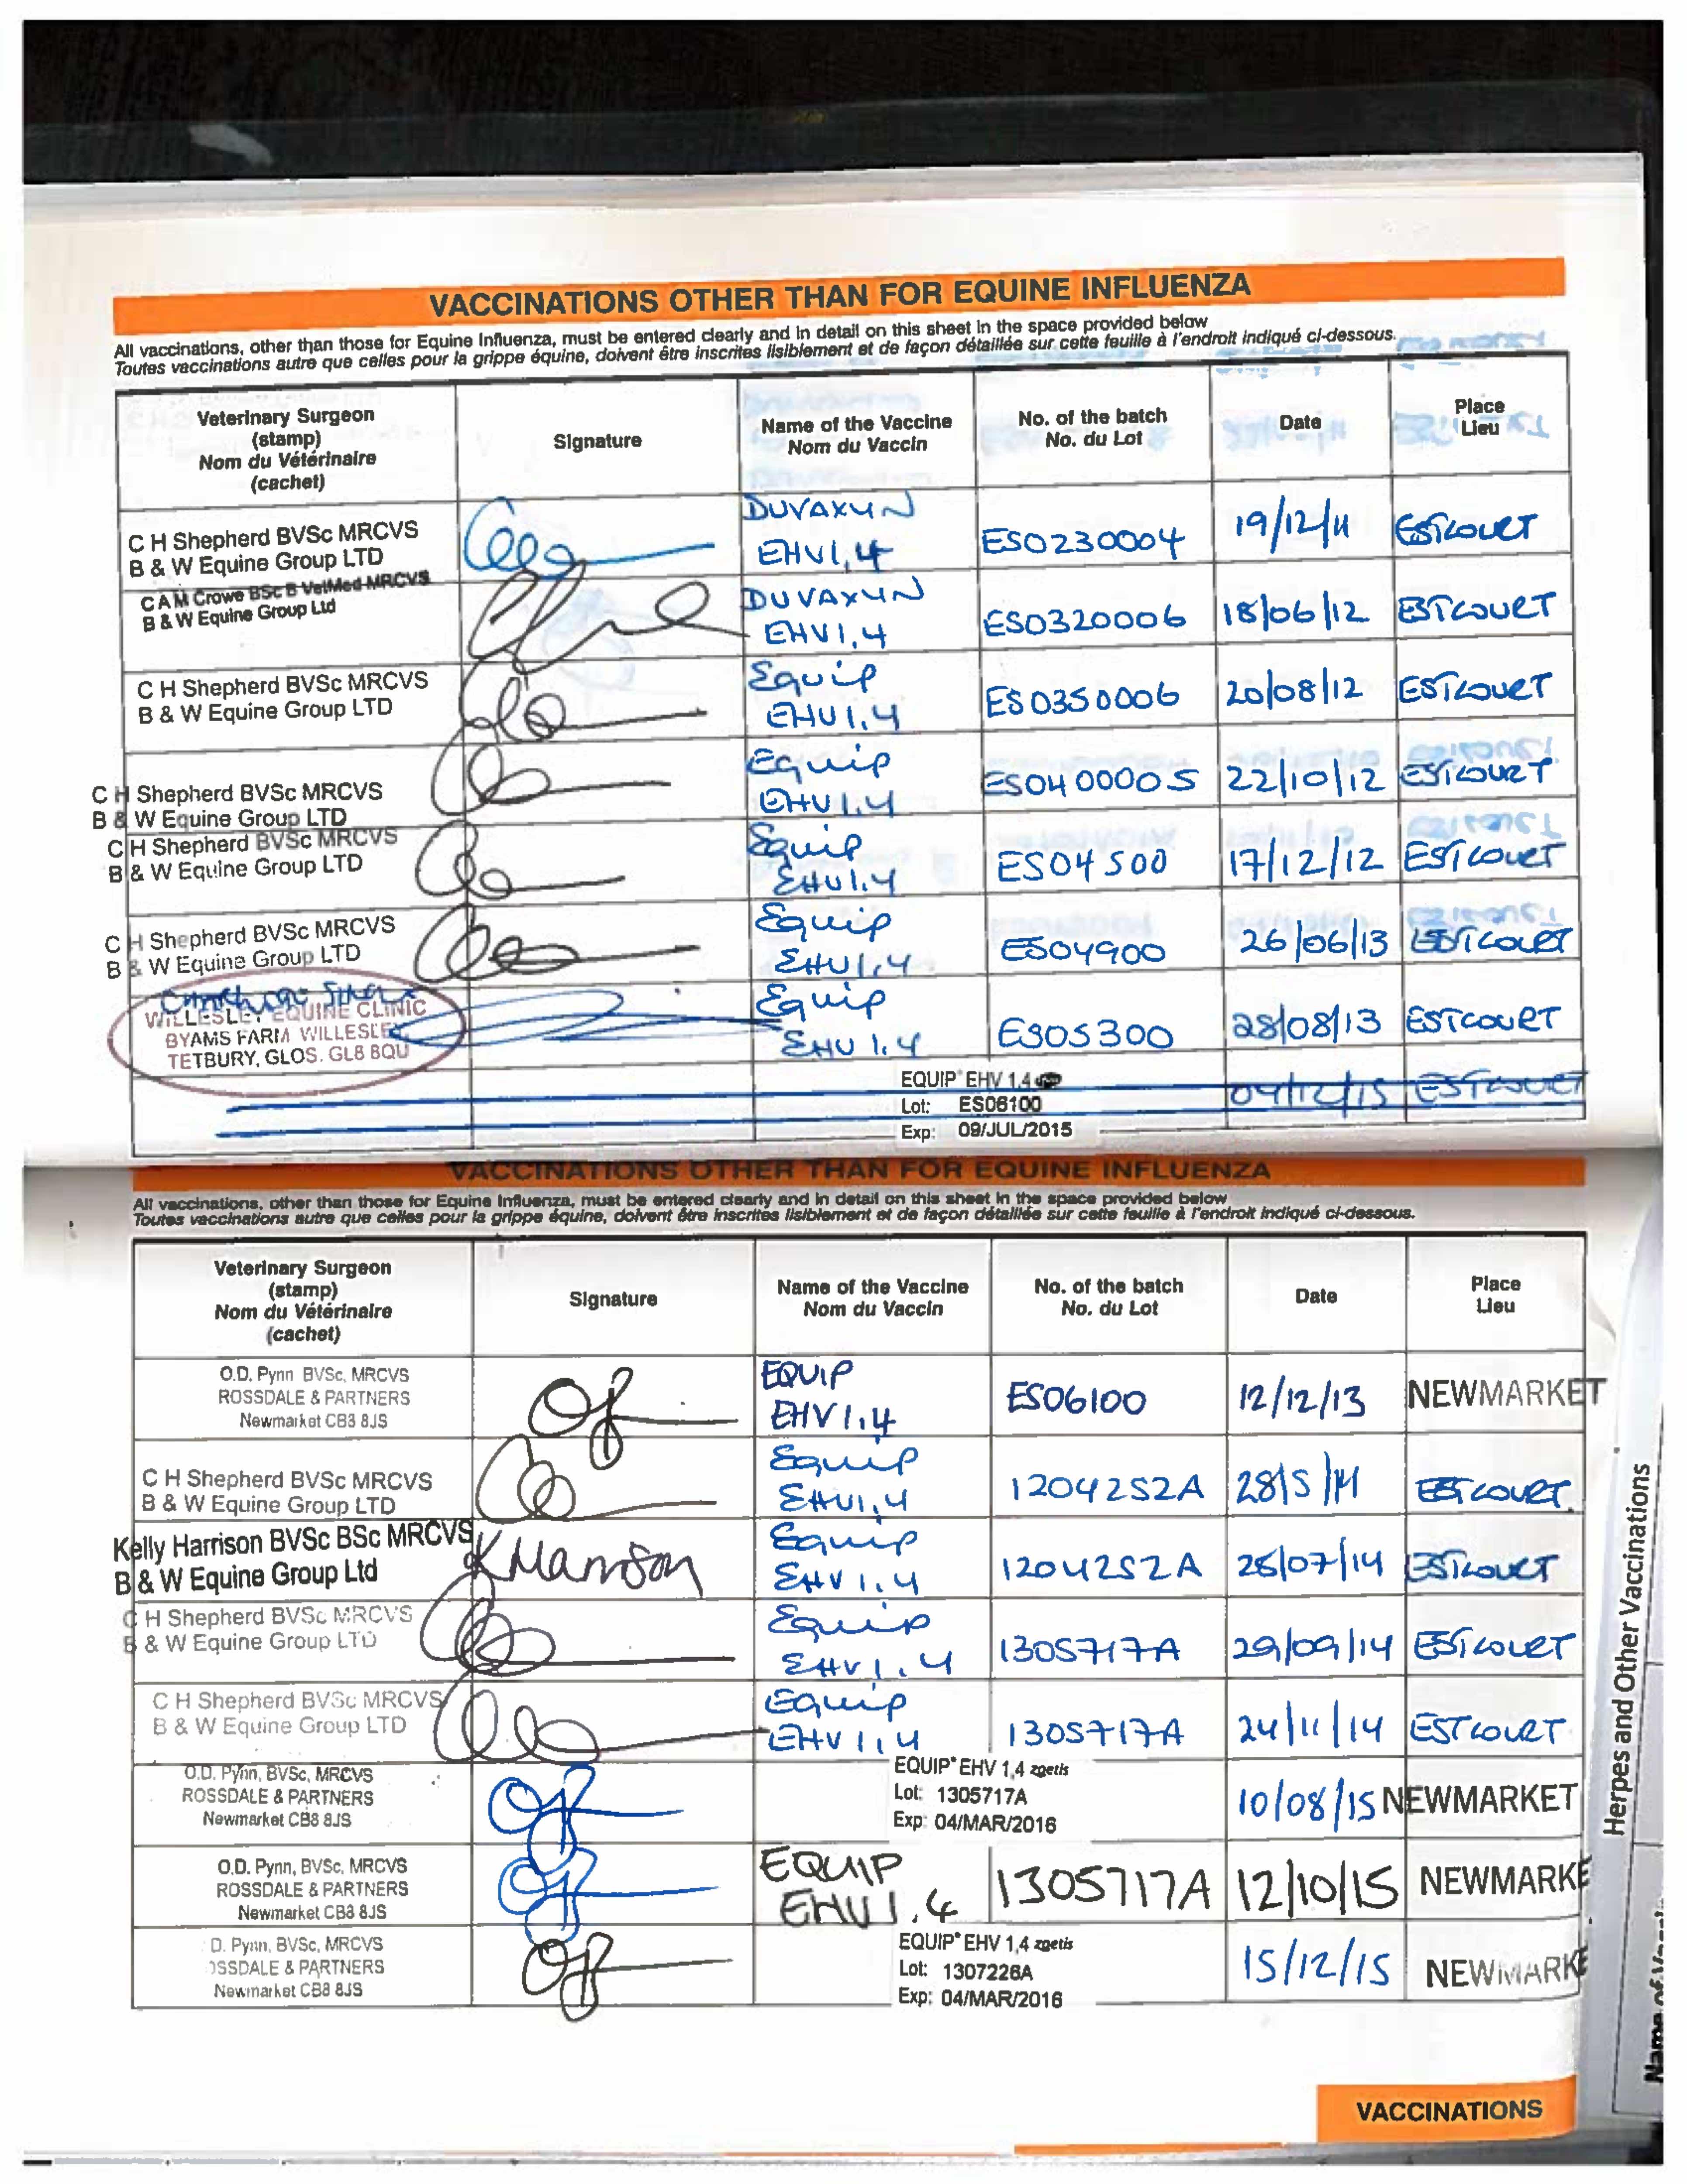 VACCINATIONS OTHER THAN FOR EQUINE INFLUENZA
All vaccinations, other than those for Equine Influenza, must be entered clearly and in detail on this sheet in the space provided below
Toutes vaccinations autre que celles pour la grippe équine, doivent être inscrites lisiblement et de façon détaillée sur cette feuille à l'endroit indiqué ci-dessous.
Veterinary Surgeon
(stamp)
Nom du Vétérinaire
(cachet)
Signature
Name of the Vaccine
Nom du Vaccin
No. of the batch
No. du Lot
Date
Place
Lieu
C H Shepherd BVSc MRCVS
B & W Equine Group LTD
DUVAXYN
EHV1,4
ES0230004
19/12/11
ESTCOURT
C A M Crowe BSc B VetMed MRCVS
B & W Equine Group Ltd
DUVAXYN
EHV1,4
ES0320006
18/06/12
ESTCOURT
C H Shepherd BVSc MRCVS
B & W Equine Group LTD
Equip
EHV1,4
ES0350006
20/08/12
ESTCOURT
C H Shepherd BVSc MRCVS
B & W Equine Group LTD
Equip
EHV1,4
ES0400005
22/10/12
ESTCOURT
C H Shepherd BVSc MRCVS
B & W Equine Group LTD
Equip
EHV1,4
ES04500
17/12/12
ESTCOURT
C H Shepherd BVSc MRCVS
B & W Equine Group LTD
Equip
EHV1,4
ES04900
26/06/13
ESTCOURT
WILLESLEY EQUINE CLINIC
BYAMS FARM WILLESLEY
TETBURY, GLOS. GL8 8QU
Equip
EHV 1,4
ES05300
28/08/13
ESTCOURT
EQUIP EHV 1,4
Lot: ES06100
Exp: 09/JUL/2015
04/12/15
ESTCOURT
VACCINATIONS OTHER THAN FOR EQUINE INFLUENZA
All vaccinations, other than those for Equine Influenza, must be entered clearly and in detail on this sheet in the space provided below
Toutes vaccinations autre que celles pour la grippe équine, doivent être inscrites lisiblement et de façon détaillée sur cette feuille à l'endroit indiqué ci-dessous.
Veterinary Surgeon
(stamp)
Nom du Vétérinaire
(cachet)
Signature
Name of the Vaccine
Nom du Vaccin
No. of the batch
No. du Lot
Date
Place
Lieu
O.D. Pynn BVSc, MRCVS
ROSSDALE & PARTNERS
Newmarket CB8 8JS
EQUIP
EHV1,4
ES06100
12/12/13
NEWMARKET
C H Shepherd BVSc MRCVS
B & W Equine Group LTD
Equip
EHV1,4
1204252A
28/5/14
ESTCOURT
Kelly Harrison BVSc BSc MRCVS
B & W Equine Group Ltd
KHarrison
Equip
EHV1,4
1204252A
25/07/14
ESTCOURT
C H Shepherd BVSc MRCVS
B & W Equine Group LTD
Equip
EHV1,4
1305717A
29/09/14
ESTCOURT
C H Shepherd BVSc MRCVS
B & W Equine Group LTD
Equip
EHV1,4
1305717A
24/11/14
ESTCOURT
O.D. Pynn, BVSc, MRCVS
ROSSDALE & PARTNERS
Newmarket CB8 8JS
EQUIP EHV 1,4 zoetis
Lot: 1305717A
Exp: 04/MAR/2016
10/08/15
NEWMARKET
O.D. Pynn, BVSc, MRCVS
ROSSDALE & PARTNERS
Newmarket CB8 8JS
EQUIP
EHV1.4
1305717A
12/10/15
NEWMARKE
D. Pynn, BVSc, MRCVS
OSSDALE & PARTNERS
Newmarket CB8 8JS
EQUIP EHV 1,4 zoetis
Lot: 1307226A
Exp: 04/MAR/2016
15/12/15
NEWMARKE
Herpes and Other Vaccinations
VACCINATIONS